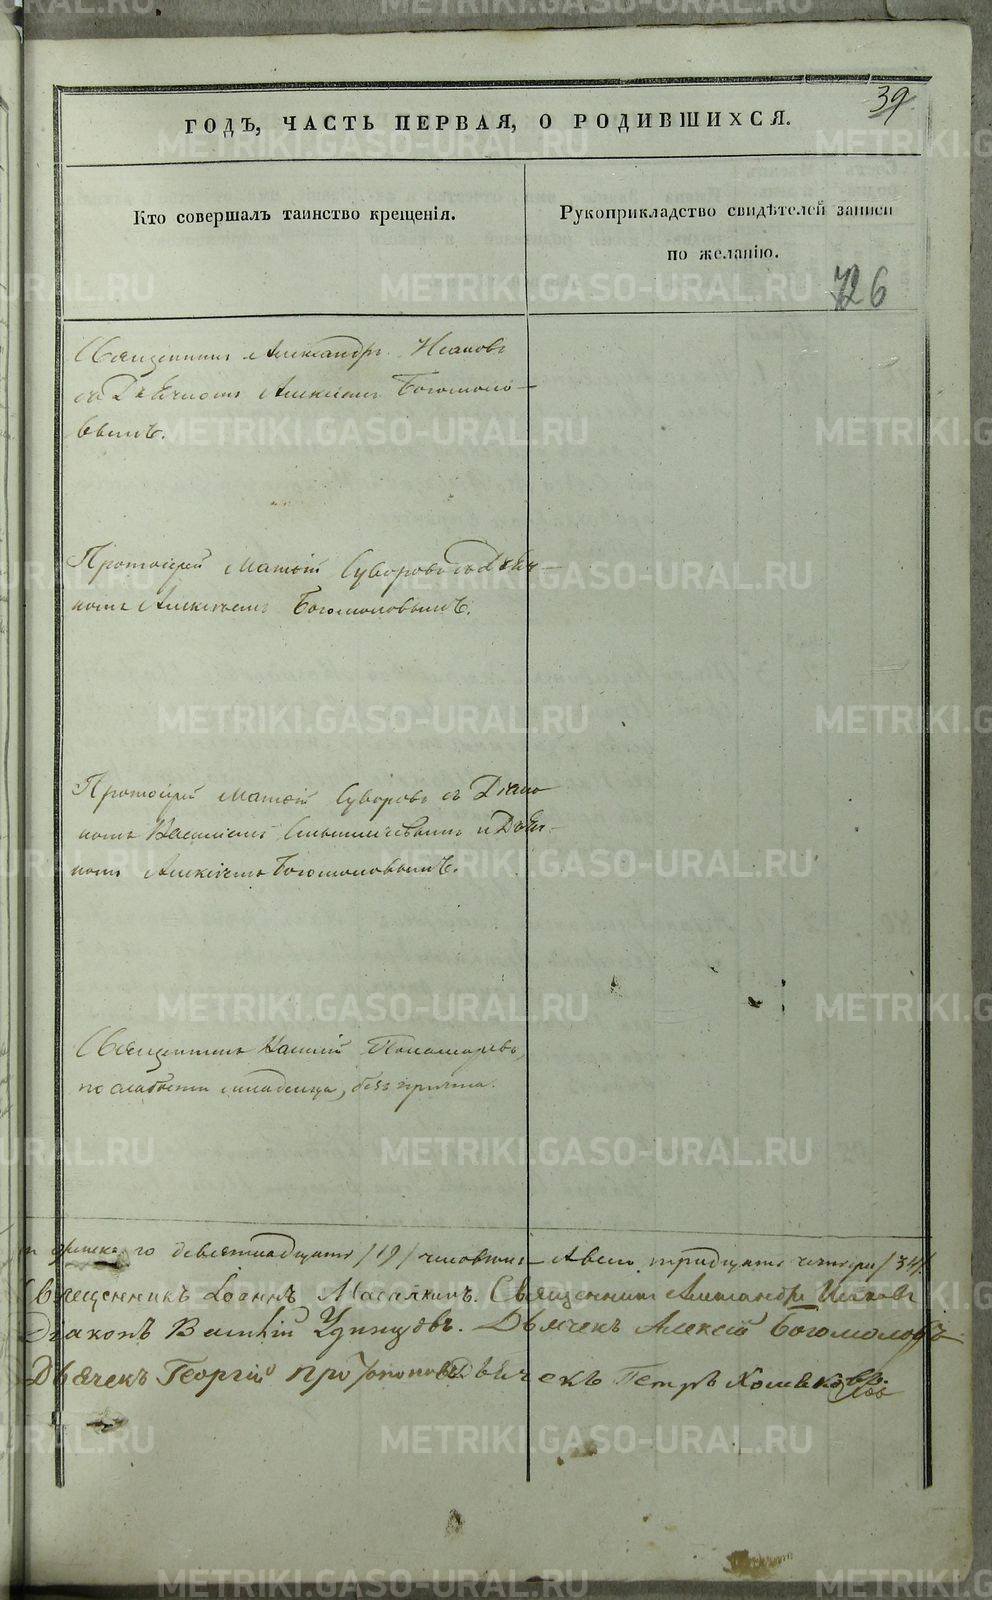 39
ГОДЪ, ЧАСТЬ ПЕРВАЯ, О РОДИВШИХСЯ.
Кто совершалъ таинство крещенія.
Рукоприкладство свидѣтелей записи
по желанію.
726
Священникъ Александръ Исаковъ
съ Дьячкомъ Алексѣемъ Богомоло-
вымъ.
Протоіерей Матѳій Суворовъ съ Дьяч-
комъ Алексѣемъ Богомоловымъ.
Протоіерей Матѳій Суворовъ съ Діако
номъ Василіемъ и Дьяч-
комъ Алексѣемъ Богомоловымъ.
Священникъ Василій Пономаревъ,
по слабости младенца, безъ причта.
го девятнадцать /19/ человѣкъ А всего тридцать четыре /34/.
Священникъ Іоаннъ Священникъ Александръ Исаковъ
Діаконъ Дьячекъ Алексѣй Богомоловъ
Дьячекъ Георгій Протопоповъ Дьячекъ Петръ
METRIKI.GASO-URAL.RU